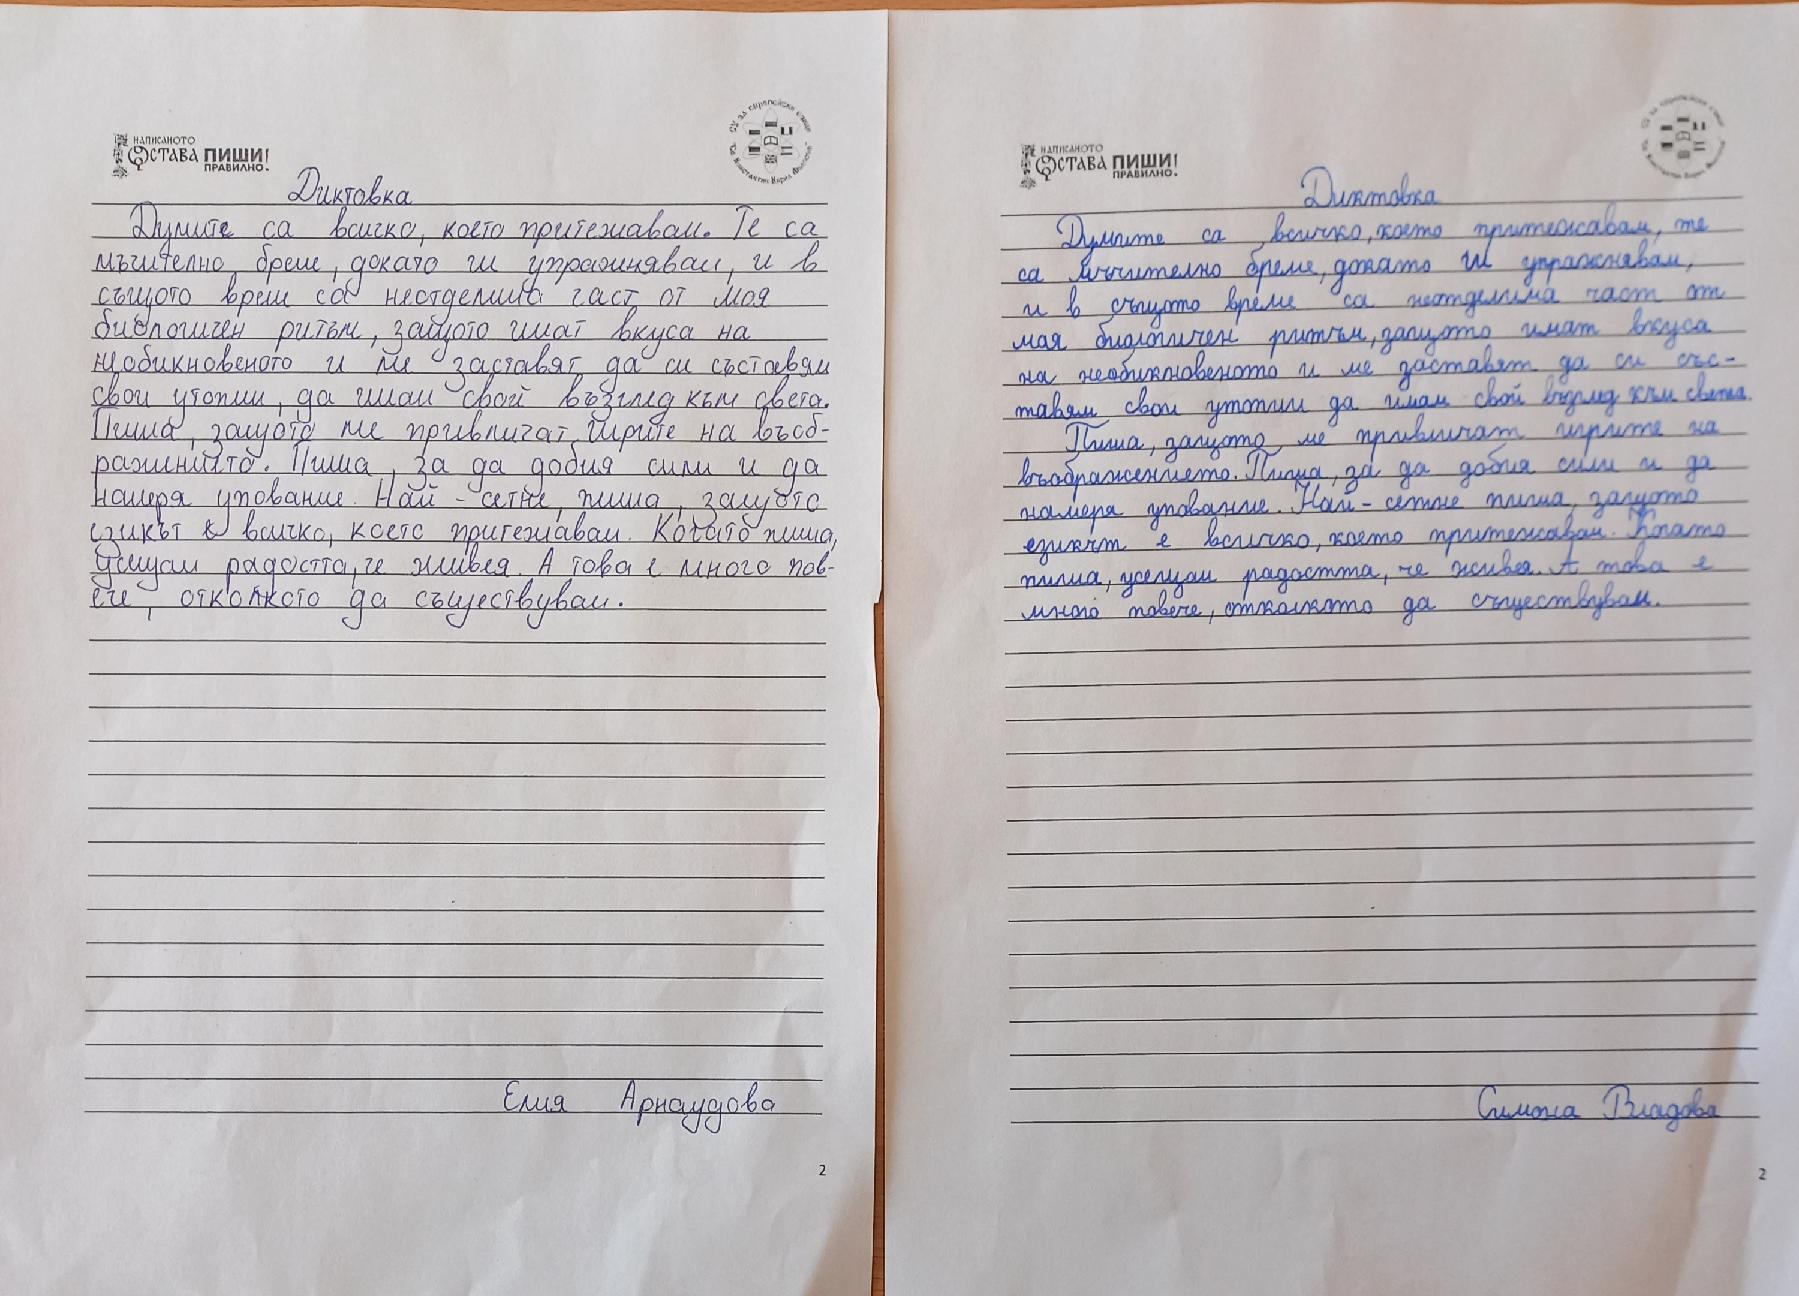 НАПИСАНОТО
ОСТАВА ПИШИ!
ПРАВИЛНО.
Диктовка
Думите са всичко, което притежавам. Те са
мъчително бреме, докато ги упражнявам, и в
същото време са неотделима част от моя
биологичен ритъм, защото имат вкуса на
необикновеното и ме заставят да си съставям
свои утопии, да имам свой възглед към света.
Пиша, защото ме привличат игрите на въоб-
ражението. Пиша, за да добия сили и да
намеря упование. Най - сетне, пиша, защото
езикът е всичко, което притежавам. Когато пиша,
усещам радостта, че живея. А това е много пов-
ече, отколкото да съществувам.
Елия Арнаудова
2
НАПИСАНОТО
ОСТАВА ПИШИ!
ПРАВИЛНО.
Диктовка
Думите са всичко, което притежавам, те
са мъчително бреме, докато ги упражнявам,
и в същото време са неотделима част от
моя биологичен ритъм, защото имат вкуса
на необикновеното и ме заставят да си със-
тавям свои утопии да имам свой възглед към света.
Пиша, защото, ме привличат игрите на
въображението. Пиша, за да добия сили и да
намеря упование. Най - сетне пиша, защото
езикът е всичко, което притежавам. Когато
пиша, усещам радостта, че живея. А това е
много повече, отколкото да съществувам.
Симона Владова
2